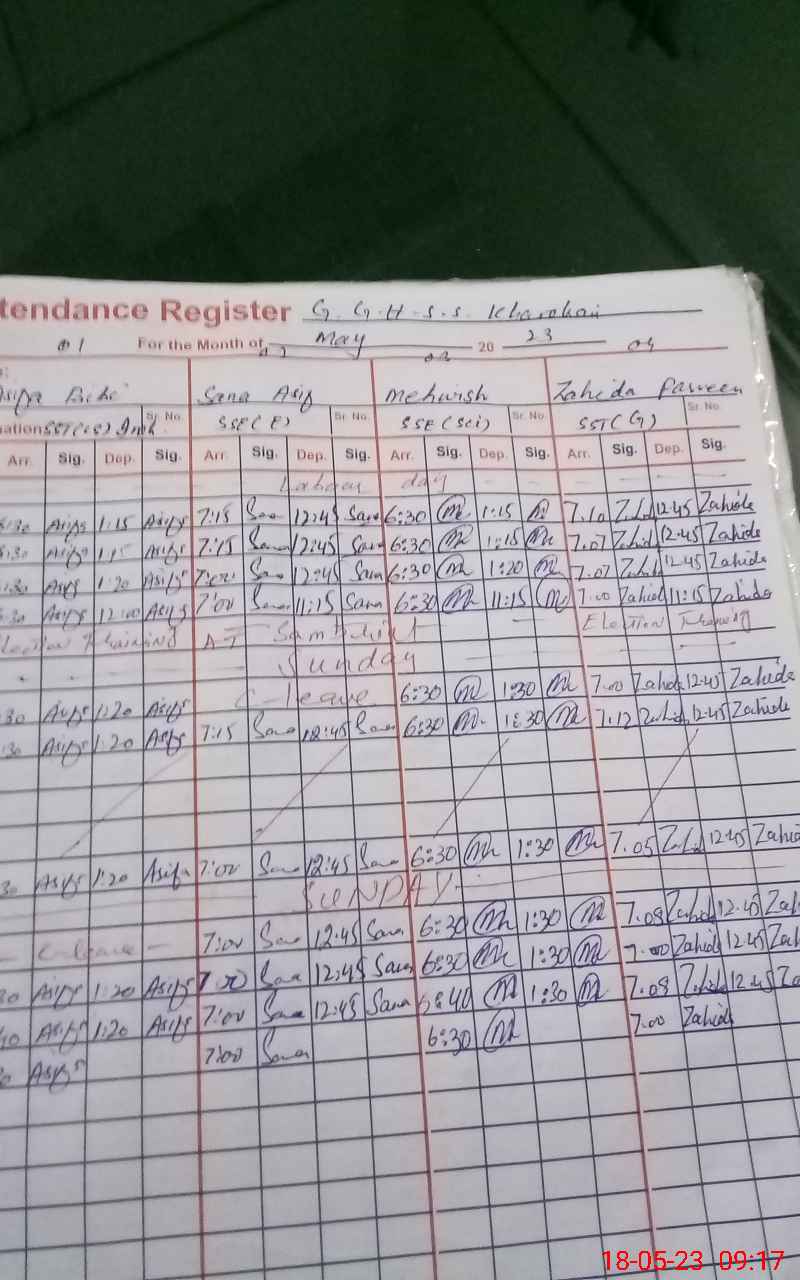 tendance Register G. G. H. S. S. Kharohai
01 For the Month of May 20 23
02 03 04
Asifa Bibi Sana Asif Mehwish Zahida Parveen
Sr. No. Sr. No. Sr. No. Sr. No.
ation SSE(E) SSE (Sci) SST(G)
Arr. Sig. Dep. Sig. Arr. Sig. Dep. Sig. Arr. Sig. Dep. Sig. Arr. Sig. Dep. Sig.
Labour day
:30 Asifa 1:15 Asifa 7:15 Sana 12:45 Sana 6:30 M 1:15 M 7.10 Zahid 12.45 Zahida
:30 Asifa 1:15 Asifa 7:15 Sana 12:45 Sana 6:30 M 1:15 M 7.07 Zahid 12.45 Zahida
:30 Asifa 1:20 Asifa 7:00 Sana 12:45 Sana 6:30 M 1:20 M 7.07 Zahid 12.45 Zahida
:30 Asifa 12:00 Asifa 7:00 Sana 11:15 Sana 6:30 M 11:15 M 7.00 Zahid 11:15 Zahida
Election Training AT Election Training
Sunday
30 Asifa 1:20 Asifa C-leave 6:30 M 1:30 M 7.00 Zahida 12.45 Zahida
:30 Asifa 1:20 Asifa 7:15 Sana 12:45 Sana 6:30 M 1:30 M 7.12 Zahid 12.45 Zahida
30 Asifa 1:20 Asifa 7:00 Sana 12:45 Sana 6:30 M 1:30 M 7.05 Zahid 12.45 Zahid
SUNDAY
C-leave 7:00 Sana 12:45 Sana 6:30 M 1:30 M 7.08 Zahid 12.45 Zah
30 Asifa 1:20 Asifa 7:00 Sana 12:45 Sana 6:30 M 1:30 M 7.00 Zahid 12.45 Zah
40 Asifa 1:20 Asifa 7:00 Sana 12:45 Sana 6:40 M 1:30 M 7.08 Zahid 12.45 Za
Asifa 7:00 Sana 6:30 M 7.00 Zahida
18-05-23 09:17